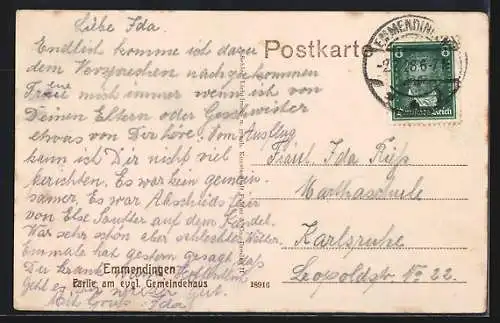 Liebe Ida.
Endlich komme ich dazu
dem Versprechen nachzukommen
Freue mich immer wenn ich von
Deinen Eltern oder Geschwister
etwas von Dir höre. Vom Ausflug
kann ich Dir nicht viel
berichten. Es war kein gemein-
sames. Es war Abschieds feier
von Else auf dem Kandel.
War sehr schön aber schlechtes Wetter.
Emmale hat gestern gesagt daß
Du krank Hoffentlich
Geht es Dir wieder gut.
Mit Gruß Ida
Postkarte
EMMENDINGEN
Deutsches Reich
Fräul. Ida
Marthaschule
Karlsruhe
Leopoldstr. No 22.
Emmendingen
Partie am evgl. Gemeindehaus
18916